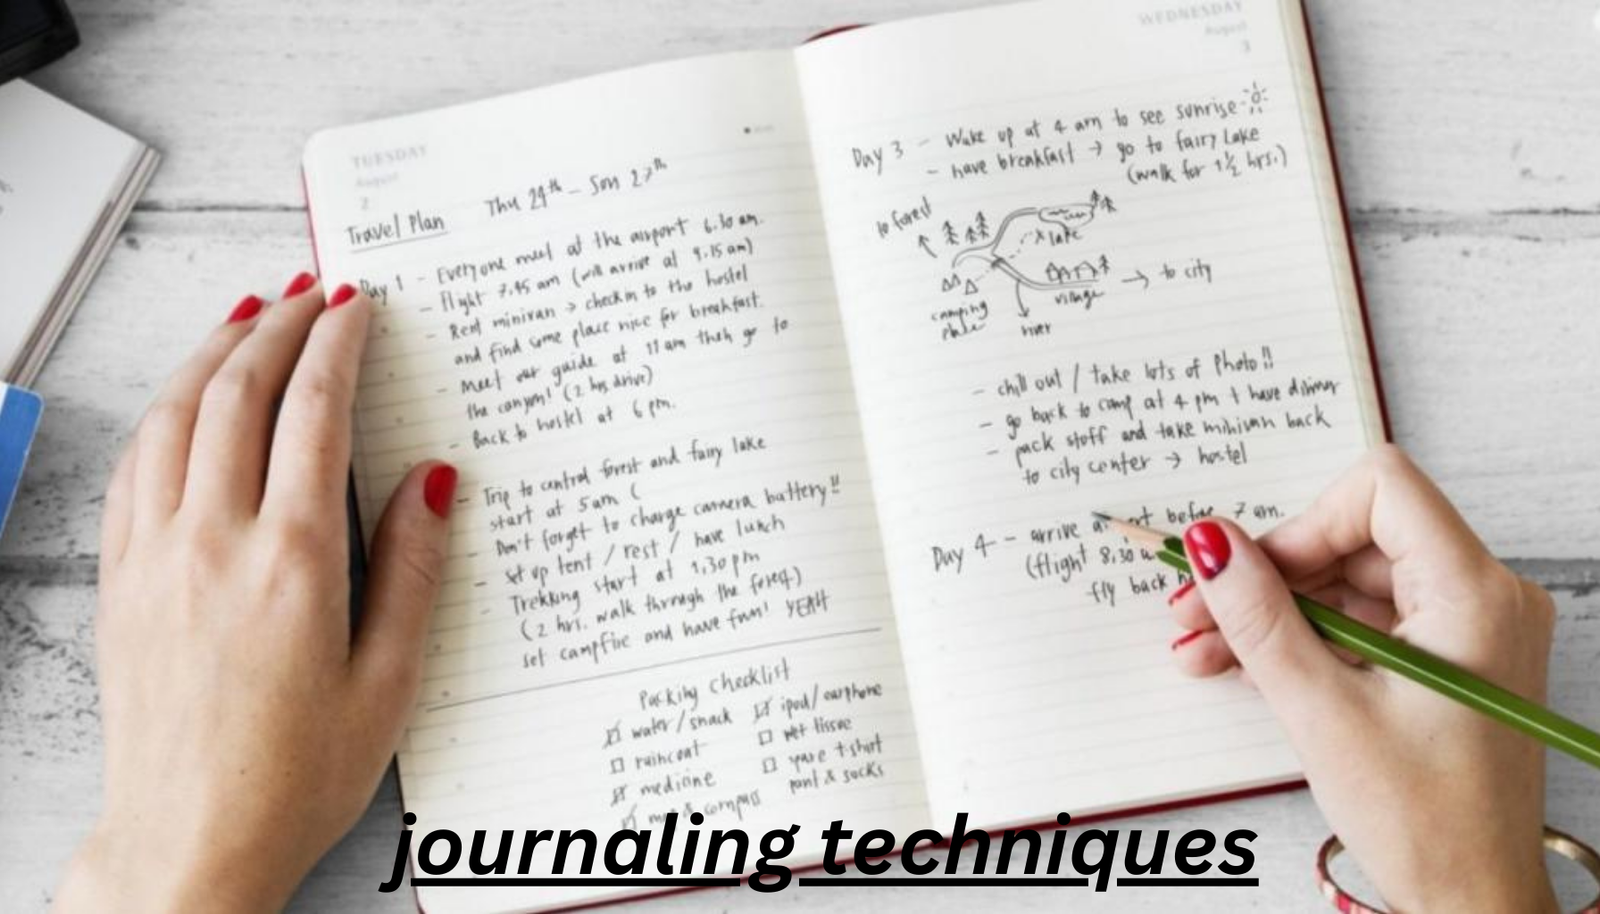 TUESDAY
August
2
Thu 24th - Sun 27th
Travel Plan
Day 1 - Everyone meet at the airport 6.30 am.
- Flight 7.45 am (will arrive at 9.15 am)
- Rent minivan → check in to the hostel
and find some place nice for breakfast.
- Meet our guide at 11 am then go to
the canyon! (2 hrs drive)
- Back to hostel at 6 pm.
- Trip to central forest and fairy lake
start at 5 am (
- Don't forget to charge camera battery!!
- Set up tent / rest / have lunch
- Trekking start at 1.30 pm
(2 hrs. walk through the forest)
set campfire and have fun! YEAH
Packing Checklist
☑ water/snack
☐ raincoat
☑ medicine
☑ & compass
☑ ipod/earphone
☐ wet tissue
☐ spare t-shirt
pant & socks
WEDNESDAY
August
3
Day 3 - Wake up at 4 am to see sunrise
- have breakfast → go to fairy lake
(walk for 1½ hrs.)
to forest
lake
→ to city
village
camping
place
river
- chill out / take lots of photo!!
- go back to camp at 4 pm + have dinner
- pack stuff and take minivan back
to city center → hostel
Day 4 - arrive before 7 am.
(flight 8.30
fly back
journaling techniques